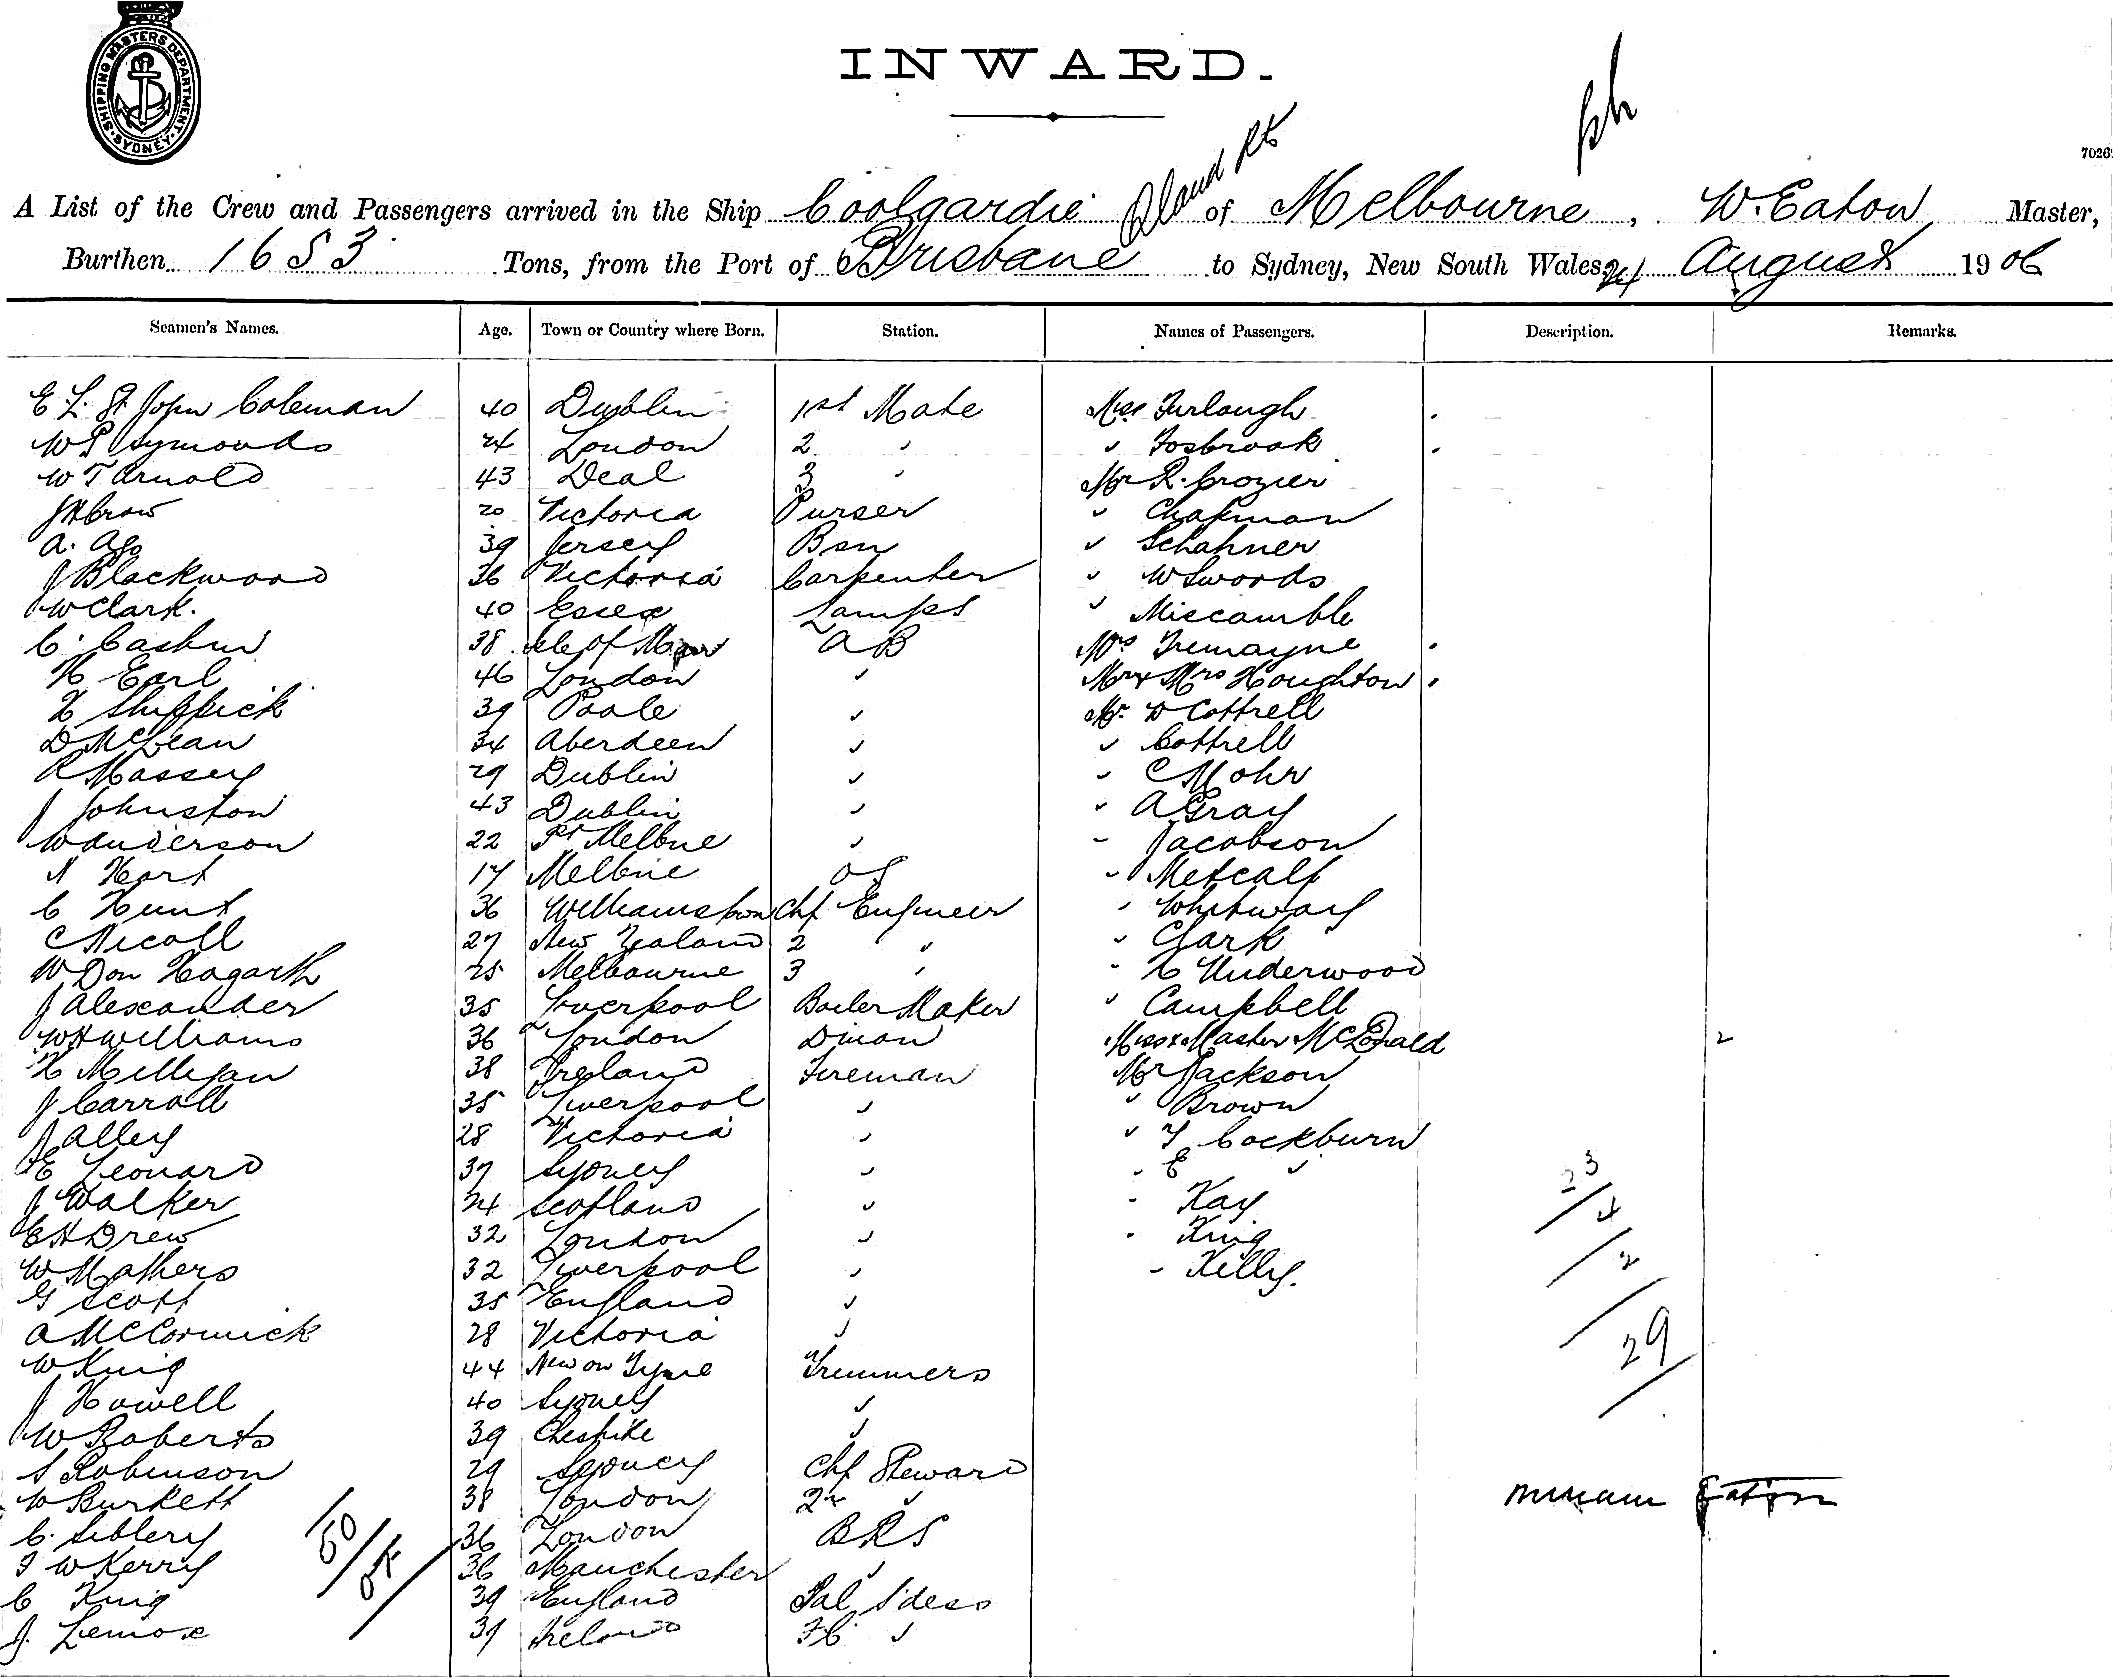 SHIPPING MASTERS DEPARTMENT SYDNEY
INWARD.
7026
A List of the Crew and Passengers arrived in the Ship Coolgardie of Melbourne, W. Eaton Master,
Burthen 1653 Tons, from the Port of Brisbane to Sydney, New South Wales, 24 August 1906
Seamen's Names. Age. Town or Country where Born. Station. Names of Passengers. Description. Remarks.
E L St John Coleman 40 Dublin 1st Mate Miss Furlough
W P Symonds 24 London 2 " " Fosbrook
W T Arnold 43 Deal 3 " Mr R. Crozier
J H Craw 20 Victoria Purser " Chapman
A. Ago 39 Jersey Bsn " Schahner
J Blackwood 36 Victoria Carpenter " W Swords
W Clark. 40 Essex Lamps " Miscamble
C. Cashin 38 Isle of Man A B Mrs Tremayne
H Earl 46 London " Mr & Mrs Houghton
H Shippick 39 Poole " Mr. D Cottrell
D McLean 34 Aberdeen " " Cottrell
R Massey 29 Dublin " " C Mohr
J Johnston 43 Dublin " " A Gray
W Anderson 22 Pt Melbne " " Jacobson
A Hart 17 Melbne O S " Metcalf
C Hunt 36 Williamstown Chf Engineer " Whitway
C Nicoll 27 New Zealand 2 " " Clark
W Don Hogarth 25 Melbourne 3 " " H Underwood
J Alexander 35 Liverpool Boiler Maker " Campbell
W H Williams 36 London Dman Miss & Master McDonald 2
H Milligan 38 Ireland Fireman Mr Jackson
J Carroll 35 Liverpool " " Brown
J Alley 28 Victoria " " T Cockburn
E Leonard 37 Sydney " " E "
J Walker 24 Scotland " " Kay 23/4
E H Drew 32 London " " King 2
W Mathers 32 Liverpool " " Kelly.
G Scott 35 England "
A McCormick 28 Victoria " 29
W King 44 New on Tyne Trimmers
J Howell 40 Sydney "
W Roberts 39 Cheshire "
S Robinson 29 Sydney Chf Steward
W Burkett 38 London 2nd " William Eaton
C. Sibley 36 London BRS
J W Kerry 36 Manchester "
C King 39 England Sal Sdess
J. Lemox 37 Ireland FC "